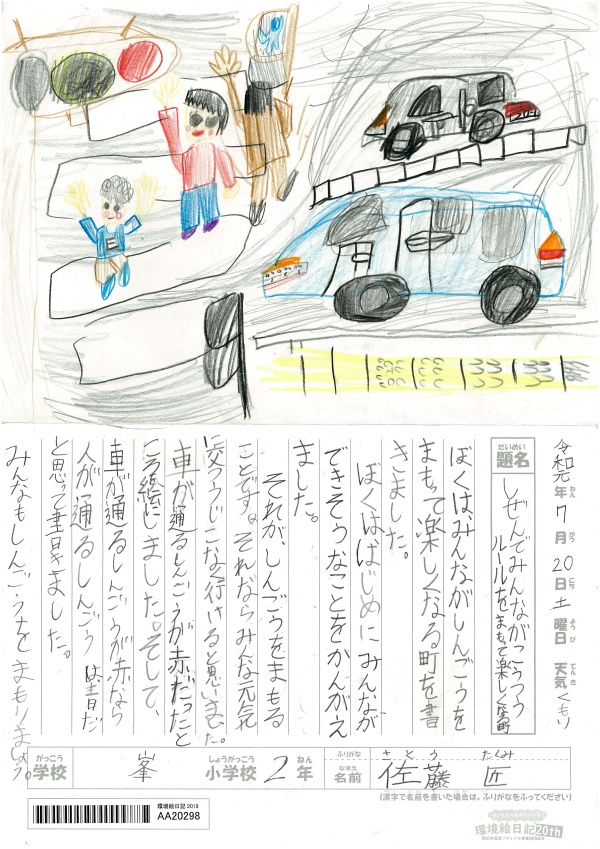 令和元年7月20日土曜日 天気くもり
題名 しぜんでみんながこうつう
ルールをまもって楽しくなる町
ぼくは、みんながしんごうを
まもって楽しくなる町を書
きました。
ぼくははじめにみんなが
できそうなことをかんがえ
ました。
それが、しんごうをまもる
ことですね。それならみんな元気
に交つうじこなく行けると思いました。
車が通るしんごうが赤だったと
ころ絵にしました。そして、
車が通るしんごうが赤なら
人が通るしんごうは青だ
と思って書きました。
みんなもしんごうをまもりましょう。
がっこう
学校 峯 しょうがっこう
小学校 2年
ふりがな さとう たくみ
なまえ
名前 佐藤 匠
(漢字で名前を書いた場合は、ふりがなをふってください)
環境絵日記 2019
AA20298
環境絵日記20th